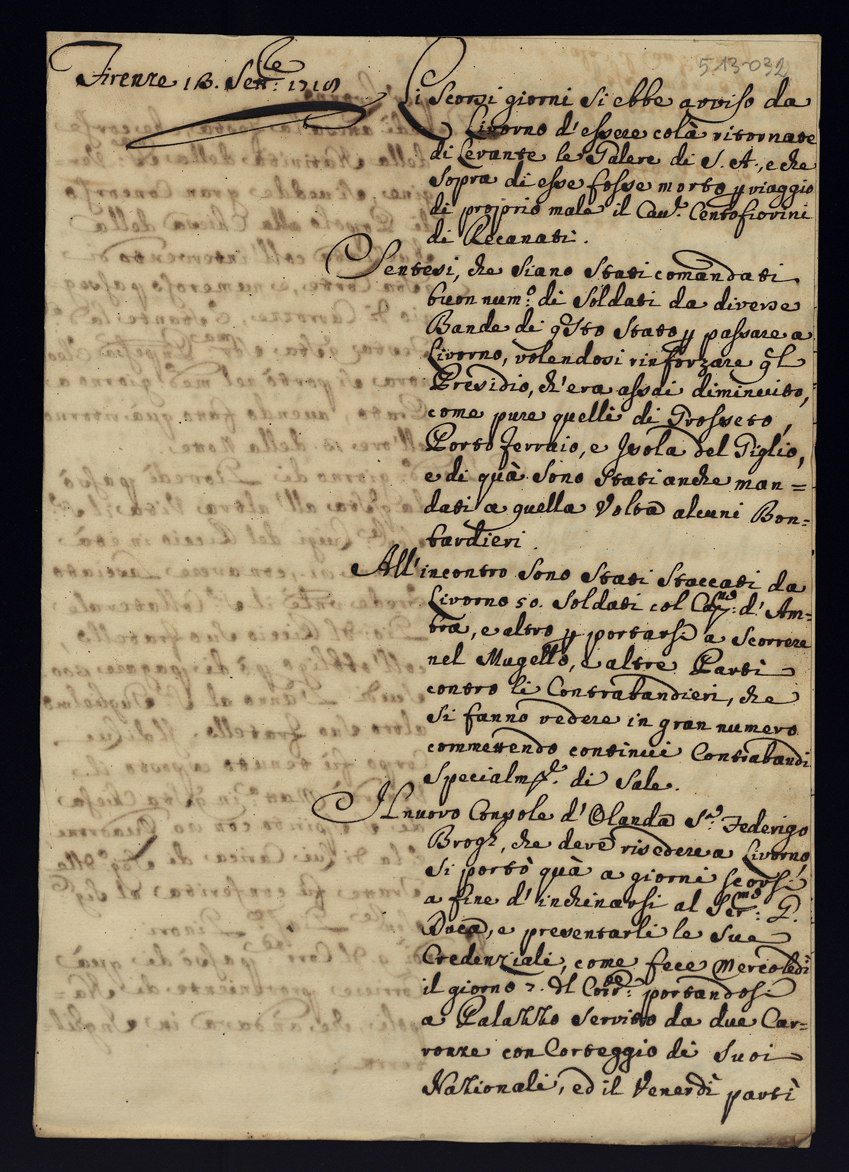 513-032
Firenze 13. Sett:le 1718
Li Scorsi giorni si ebbe avviso da
Livorno d'essere colà ritornate
di Levante le Galere di S. A., e che
sopra di esse fosse morto p viaggio
di proprio male il Cav:r Centofiorini
di Recanati.
Sentesi, che siano stati comandati
buon num:o di Soldati da diverse
Bande di q.sto Stato p passare a
Livorno, volendosi rinforzare q.l
Presidio, ch'era assai diminuito,
come pure quelli di Grosseto,
Porto Ferraio, e Isola del Giglio,
e di quà sono stati anche man=
dati a quella volta alcuni Bom=
bardieri.
All'incontro sono stati staccati da
Livorno 50. Soldati col Cap:no d'Am=
bra, e altro p portarsi a scorrere
nel Mugello, e altre Parti
contro li Contrabandieri, che
si fanno vedere in gran numero
commettendo continui Contrabandi
Specialm:te di Sale.
Il nuovo Console d'Olanda S:r Federigo
che deve risedere a Livorno
si portò quà a giorni scorsi
a fine d'inchinarsi al Ser:mo G.
Duca, e presentarli le sue
Credenziali, come fece Mercoledì
il giorno 7. dl Corr:te portandosi
a Palazzo servito da due Car=
rozze con Corteggio di suoi
Nazionali, ed il Venerdì partì